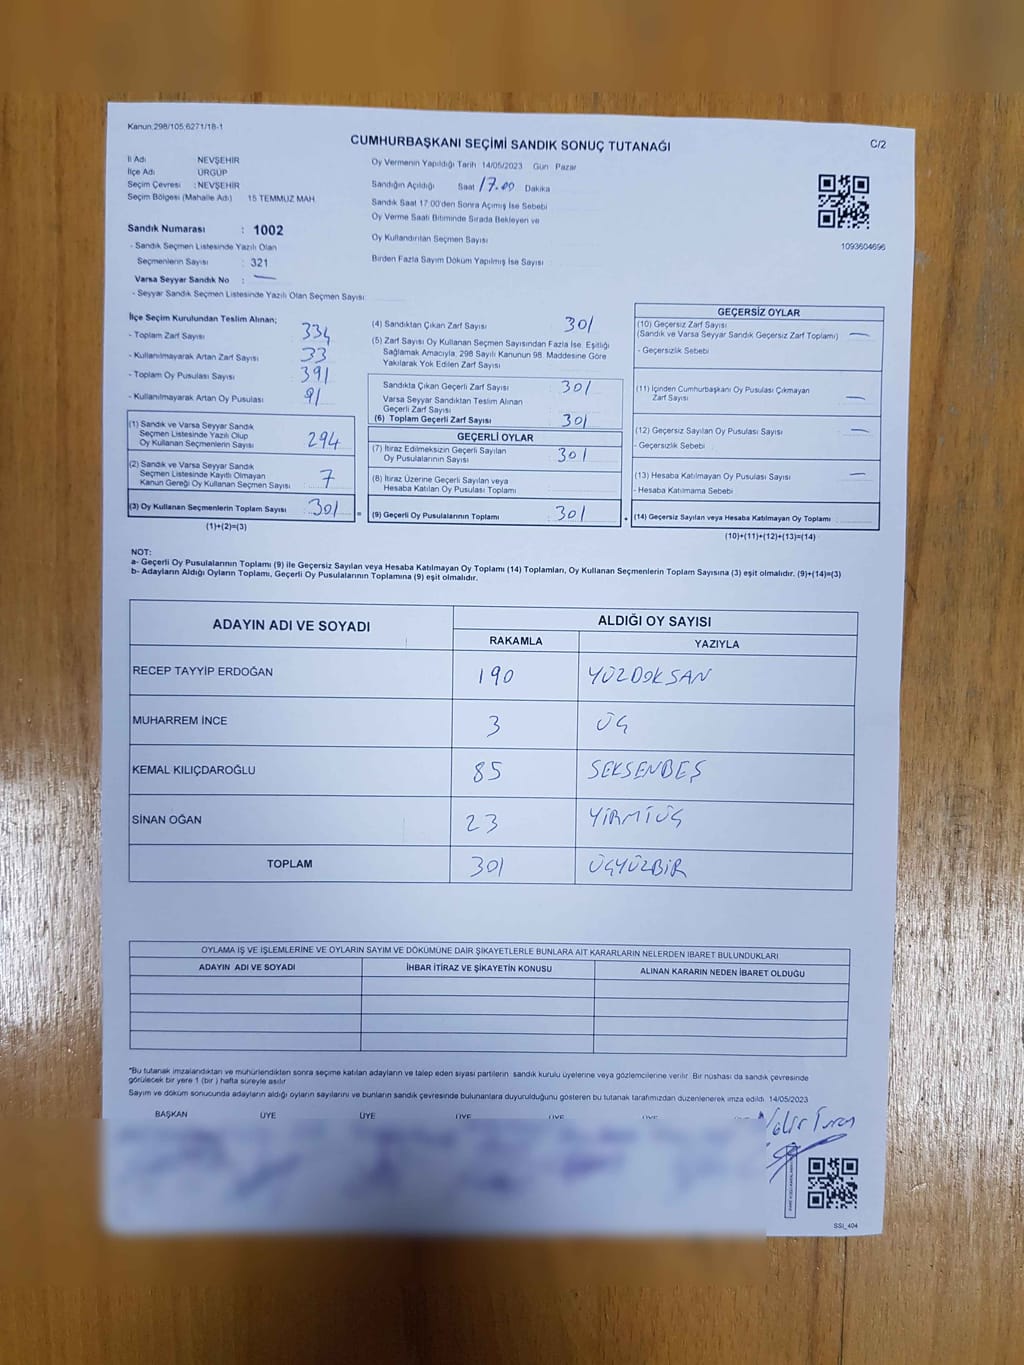 Kanun:298/105;6271/18-1
CUMHURBAŞKANI SEÇİMİ SANDIK SONUÇ TUTANAĞI
C/2
İl Adı NEVŞEHİR
İlçe Adı ÜRGÜP
Seçim Çevresi : NEVŞEHİR
Seçim Bölgesi (Mahalle Adı) 15 TEMMUZ MAH.
Oy Vermenin Yapıldığı Tarih 14/05/2023 Gün Pazar
Sandığın Açıldığı Saat 17.00 Dakika
Sandık Saat 17:00'den Sonra Açmış İse Sebebi
Oy Verme Saati Bitiminde Sırada Bekleyen ve
Oy Kullandırılan Seçmen Sayısı
Birden Fazla Sayım Döküm Yapılmış İse Sayısı
1093604696
Sandık Numarası : 1002
- Sandık Seçmen Listesinde Yazılı Olan
Seçmenlerin Sayısı : 321
Varsa Seyyar Sandık No : —
- Seyyar Sandık Seçmen Listesinde Yazılı Olan Seçmen Sayısı
İlçe Seçim Kurulundan Teslim Alınan;
- Toplam Zarf Sayısı 334
- Kullanılmayarak Artan Zarf Sayısı 33
- Toplam Oy Pusulası Sayısı 391
- Kullanılmayarak Artan Oy Pusulası 91
(1) Sandık ve Varsa Seyyar Sandık
Seçmen Listesinde Yazılı Olup
Oy Kullanan Seçmenlerin Sayısı 294
(2) Sandık ve Varsa Seyyar Sandık
Seçmen Listesinde Kayıtlı Olmayan
Kanun Gereği Oy Kullanan Seçmen Sayısı 7
(3) Oy Kullanan Seçmenlerin Toplam Sayısı 301 =
(1)+(2)=(3)
(4) Sandıktan Çıkan Zarf Sayısı 301
(5) Zarf Sayısı Oy Kullanan Seçmen Sayısından Fazla İse, Eşitliği
Sağlamak Amacıyla; 298 Sayılı Kanunun 98. Maddesine Göre
Yakılarak Yok Edilen Zarf Sayısı
Sandıkta Çıkan Geçerli Zarf Sayısı 301
Varsa Seyyar Sandıktan Teslim Alınan
Geçerli Zarf Sayısı
(6) Toplam Geçerli Zarf Sayısı 301
GEÇERLİ OYLAR
(7) İtiraz Edilmeksizin Geçerli Sayılan
Oy Pusulalarının Sayısı 301
(8) İtiraz Üzerine Geçerli Sayılan veya
Hesaba Katılan Oy Pusulası Toplamı
(9) Geçerli Oy Pusulalarının Toplamı 301 +
GEÇERSİZ OYLAR
(10) Geçersiz Zarf Sayısı
(Sandık ve Varsa Seyyar Sandık Geçersiz Zarf Toplamı) —
- Geçersizlik Sebebi
(11) İçinden Cumhurbaşkanı Oy Pusulası Çıkmayan
Zarf Sayısı —
(12) Geçersiz Sayılan Oy Pusulası Sayısı —
- Geçersizlik Sebebi
(13) Hesaba Katılmayan Oy Pusulası Sayısı —
- Hesaba Katılmama Sebebi
(14) Geçersiz Sayılan veya Hesaba Katılmayan Oy Toplamı
(10)+(11)+(12)+(13)=(14)
NOT:
a- Geçerli Oy Pusulalarının Toplamı (9) ile Geçersiz Sayılan veya Hesaba Katılmayan Oy Toplamı (14) Toplamları, Oy Kullanan Seçmenlerin Toplam Sayısına (3) eşit olmalıdır. (9)+(14)=(3)
b- Adayların Aldığı Oyların Toplamı, Geçerli Oy Pusulalarının Toplamına (9) eşit olmalıdır.
ADAYIN ADI VE SOYADI
ALDIĞI OY SAYISI
RAKAMLA YAZIYLA
RECEP TAYYİP ERDOĞAN 190 YÜZDOKSAN
MUHARREM İNCE 3 ÜÇ
KEMAL KILIÇDAROĞLU 85 SEKSENBEŞ
SİNAN OĞAN 23 YİRMİÜÇ
TOPLAM 301 ÜÇYÜZBİR
OYLAMA İŞ VE İŞLEMLERİNE VE OYLARIN SAYIM VE DÖKÜMÜNE DAİR ŞİKAYETLERLE BUNLARA AİT KARARLARIN NELERDEN İBARET BULUNDUKLARI
ADAYIN ADI VE SOYADI İHBAR İTİRAZ VE ŞİKAYETİN KONUSU ALINAN KARARIN NEDEN İBARET OLDUĞU
*Bu tutanak imzalandıktan ve mühürlendikten sonra seçime katılan adayların ve talep eden siyasi partilerin sandık kurulu üyelerine veya gözlemcilerine verilir. Bir nüshası da sandık çevresinde
görülecek bir yere 1 (bir) hafta süreyle asılır
Sayım ve döküm sonucunda adayların aldığı oyların sayılarını ve bunların sandık çevresinde bulunanlara duyurulduğunu gösteren bu tutanak tarafımızdan düzenlenerek imza edildi. 14/05/2023
BAŞKAN ÜYE ÜYE ÜYE ÜYE ÜYE
SSI_404